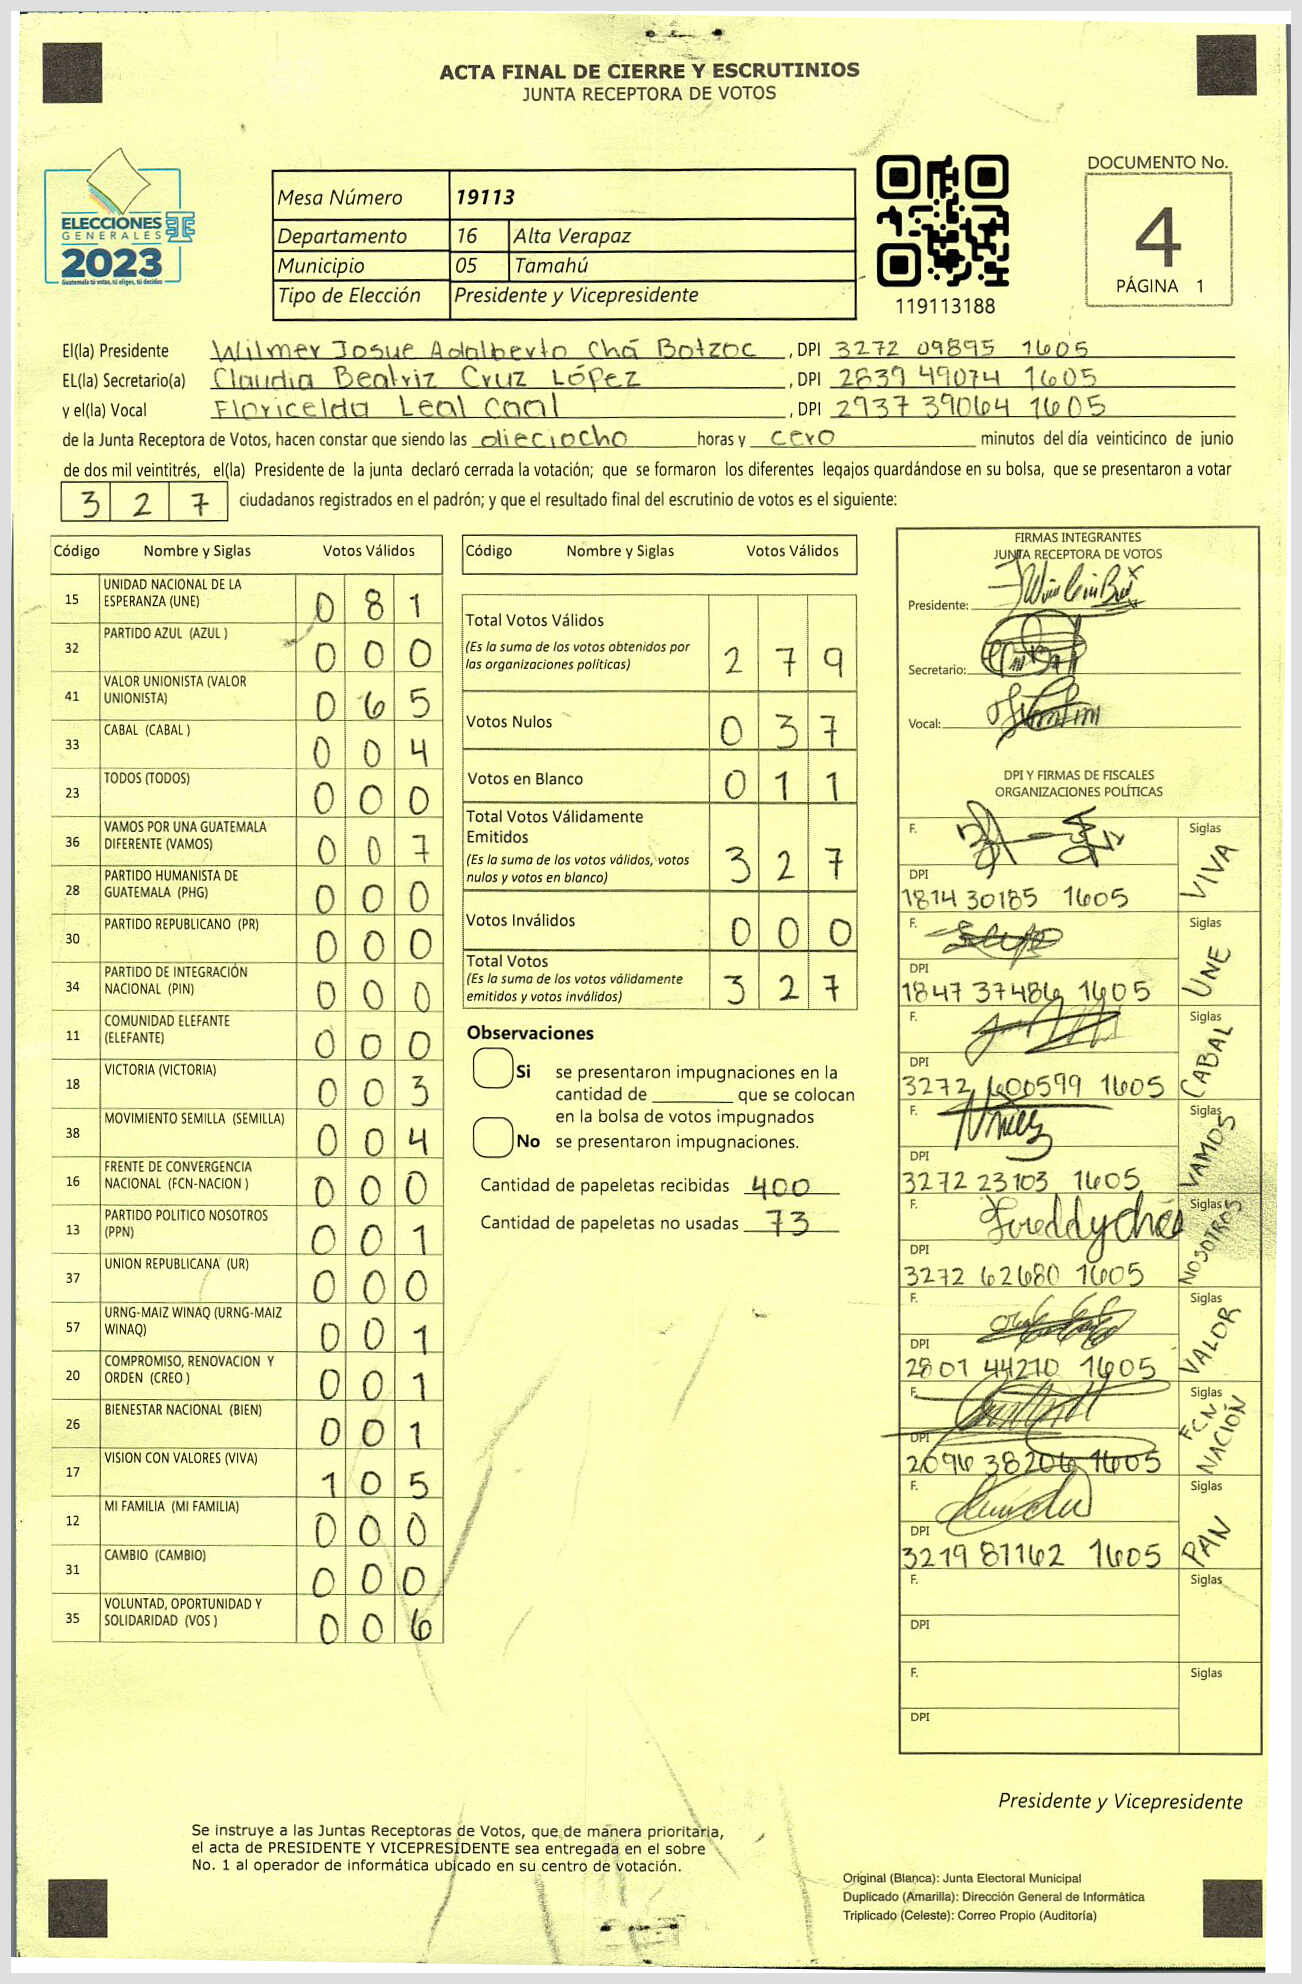 ACTA FINAL DE CIERRE Y ESCRUTINIOS
JUNTA RECEPTORA DE VOTOS
ELECCIONES
GENERALES
2023
Guatemala tú votas, tú eliges, tú decides
Mesa Número 19113
Departamento 16 Alta Verapaz
Municipio 05 Tamahú
Tipo de Elección Presidente y Vicepresidente
119113188
DOCUMENTO No.
4
PÁGINA 1
El(la) Presidente Wilmer Josue Adalberto Chá Botzoc, DPI 3272 09895 1605
EL(la) Secretario(a) Claudia Beatriz Cruz López, DPI 2839 49074 1605
y el(la) Vocal Floricelda Leal Caal, DPI 2937 39064 1605
de la Junta Receptora de Votos, hacen constar que siendo las dieciocho horas y cero minutos del día veinticinco de junio
de dos mil veintitrés, el(la) Presidente de la junta declaró cerrada la votación; que se formaron los diferentes legajos guardándose en su bolsa, que se presentaron a votar
327 ciudadanos registrados en el padrón; y que el resultado final del escrutinio de votos es el siguiente:
Código Nombre y Siglas Votos Válidos
15 UNIDAD NACIONAL DE LA ESPERANZA (UNE) 081
32 PARTIDO AZUL (AZUL ) 000
41 VALOR UNIONISTA (VALOR UNIONISTA) 065
33 CABAL (CABAL ) 004
23 TODOS (TODOS) 000
36 VAMOS POR UNA GUATEMALA DIFERENTE (VAMOS) 007
28 PARTIDO HUMANISTA DE GUATEMALA (PHG) 000
30 PARTIDO REPUBLICANO (PR) 000
34 PARTIDO DE INTEGRACIÓN NACIONAL (PIN) 000
11 COMUNIDAD ELEFANTE (ELEFANTE) 000
18 VICTORIA (VICTORIA) 003
38 MOVIMIENTO SEMILLA (SEMILLA) 004
16 FRENTE DE CONVERGENCIA NACIONAL (FCN-NACION ) 000
13 PARTIDO POLITICO NOSOTROS (PPN) 001
37 UNION REPUBLICANA (UR) 000
57 URNG-MAIZ WINAQ (URNG-MAIZ WINAQ) 001
20 COMPROMISO, RENOVACION Y ORDEN (CREO ) 001
26 BIENESTAR NACIONAL (BIEN) 001
17 VISION CON VALORES (VIVA) 105
12 MI FAMILIA (MI FAMILIA) 000
31 CAMBIO (CAMBIO) 000
35 VOLUNTAD, OPORTUNIDAD Y SOLIDARIDAD (VOS ) 006
Código Nombre y Siglas Votos Válidos
Total Votos Válidos 279
(Es la suma de los votos obtenidos por
las organizaciones políticas)
Votos Nulos 037
Votos en Blanco 011
Total Votos Válidamente
Emitidos 327
(Es la suma de los votos válidos, votos
nulos y votos en blanco)
Votos Inválidos 000
Total Votos 327
(Es la suma de los votos válidamente
emitidos y votos inválidos)
Observaciones
Si se presentaron impugnaciones en la
cantidad de ________ que se colocan
en la bolsa de votos impugnados
No se presentaron impugnaciones.
Cantidad de papeletas recibidas 400
Cantidad de papeletas no usadas 73
FIRMAS INTEGRANTES
JUNTA RECEPTORA DE VOTOS
Presidente:
Secretario:
Vocal:
DPI Y FIRMAS DE FISCALES
ORGANIZACIONES POLÍTICAS
F. Siglas VIVA
DPI
1814 30185 1605
F. Siglas UNE
DPI
1847 37486 1605
F. Siglas CABAL
DPI
3272 600599 1605
F. Nuñez Siglas VAMOS
DPI
3272 23103 1605
F. Freddy Chó Siglas NOSOTROS
DPI
3272 62680 1605
F. Siglas VALOR
DPI
2801 44210 1605
F. Siglas FCN NACIÓN
DPI
2096 38206 1605
F. Siglas PAN
DPI
3219 81162 1605
F. Siglas
DPI
F. Siglas
DPI
Presidente y Vicepresidente
Se instruye a las Juntas Receptoras de Votos, que de manera prioritaria,
el acta de PRESIDENTE Y VICEPRESIDENTE sea entregada en el sobre
No. 1 al operador de informática ubicado en su centro de votación.
Original (Blanca): Junta Electoral Municipal
Duplicado (Amarilla): Dirección General de Informática
Triplicado (Celeste): Correo Propio (Auditoría)